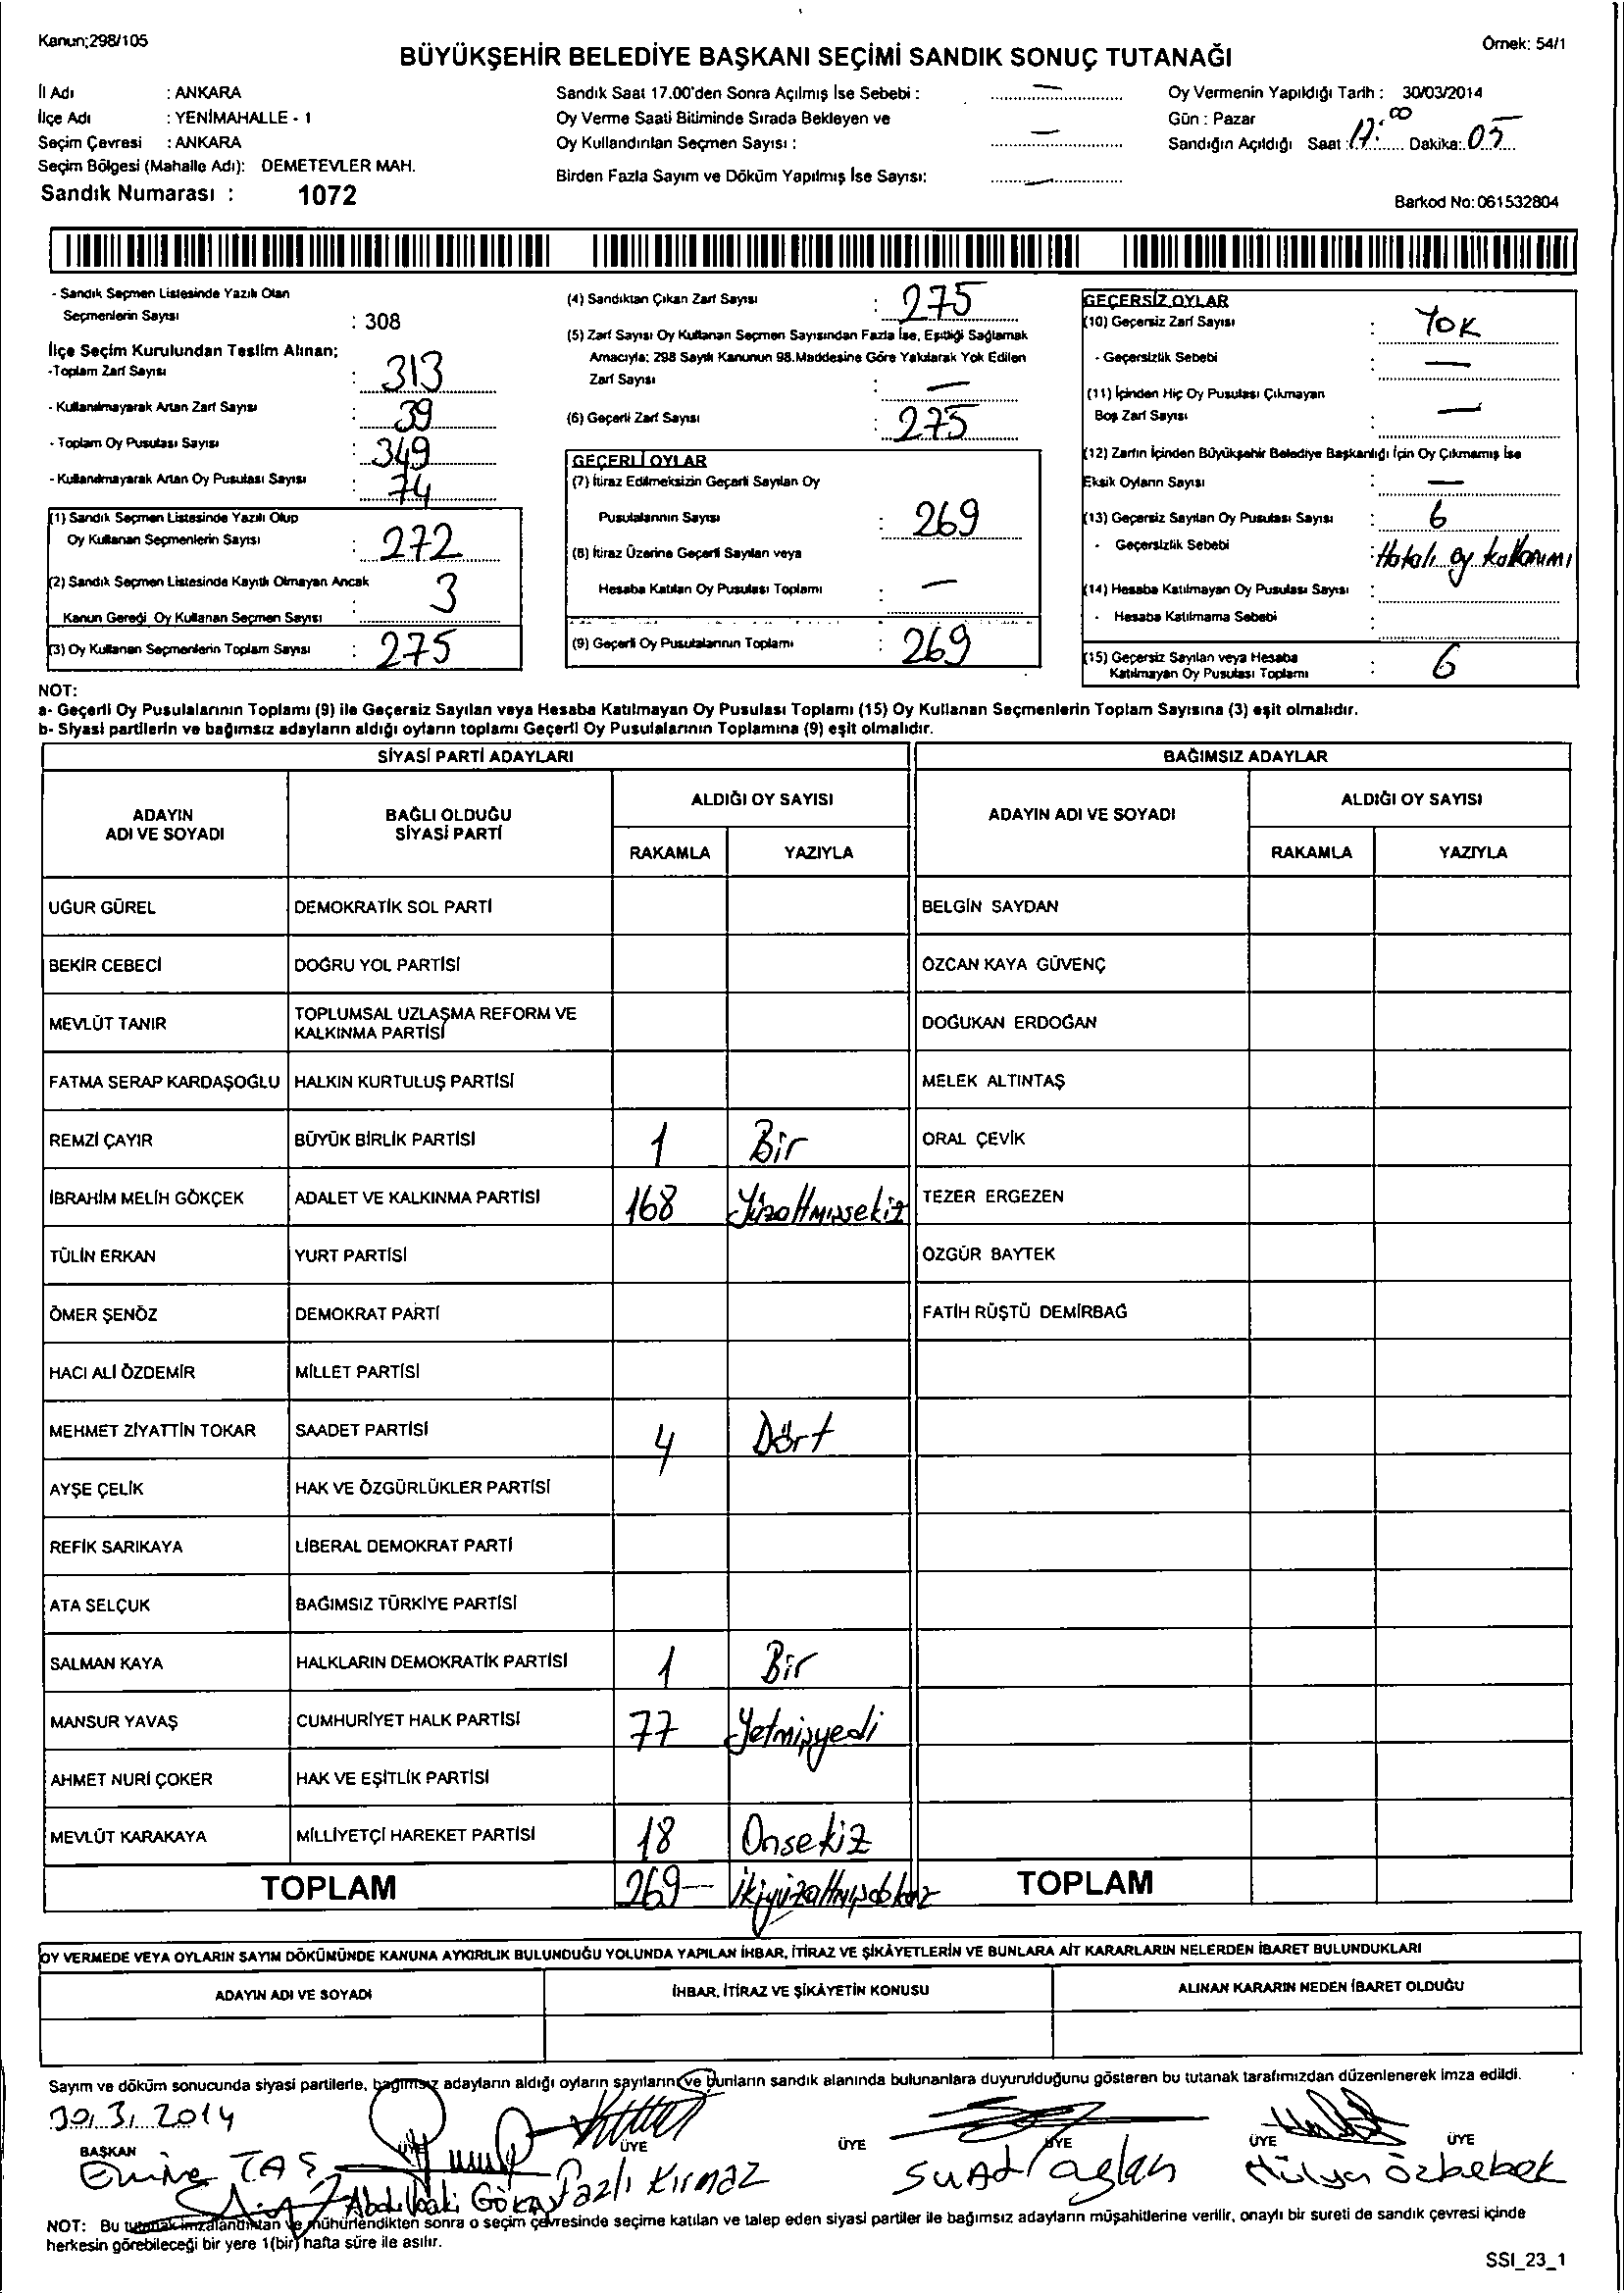 Kanun;298/105
Örnek: 54/1
BÜYÜKŞEHİR BELEDİYE BAŞKANI SEÇİMİ SANDIK SONUÇ TUTANAĞI
İl Adı : ANKARA
İlçe Adı : YENİMAHALLE - 1
Seçim Çevresi : ANKARA
Seçim Bölgesi (Mahalle Adı): DEMETEVLER MAH.
Sandık Numarası : 1072
Sandık Saat 17.00'den Sonra Açılmış İse Sebebi : —
Oy Verme Saati Bitiminde Sırada Bekleyen ve
Oy Kullandırılan Seçmen Sayısı : —
Birden Fazla Sayım ve Döküm Yapılmış İse Sayısı: —
Oy Vermenin Yapıldığı Tarih : 30/03/2014
Gün : Pazar
Sandığın Açıldığı Saat : 17:00 Dakika: 05
Barkod No: 061532804
- Sandık Seçmen Listesinde Yazılı Olan
Seçmenlerin Sayısı : 308
İlçe Seçim Kurulundan Teslim Alınan;
-Toplam Zarf Sayısı : 313
- Kullanılmayarak Artan Zarf Sayısı : 39
- Toplam Oy Pusulası Sayısı : 349
- Kullanılmayarak Artan Oy Pusulası Sayısı : 74
(1) Sandık Seçmen Listesinde Yazılı Olup
Oy Kullanan Seçmenlerin Sayısı : 272
(2) Sandık Seçmen Listesinde Kayıtlı Olmayan Ancak
Kanun Gereği Oy Kullanan Seçmen Sayısı : 3
(3) Oy Kullanan Seçmenlerin Toplam Sayısı : 275
(4) Sandıktan Çıkan Zarf Sayısı : 275
(5) Zarf Sayısı Oy Kullanan Seçmen Sayısından Fazla İse, Eşitliği Sağlamak
Amacıyla; 298 Sayılı Kanunun 98.Maddesine Göre Yakılarak Yok Edilen
Zarf Sayısı : —
(6) Geçerli Zarf Sayısı : 275
GEÇERLİ OYLAR
(7) İtiraz Edilmeksizin Geçerli Sayılan Oy
Pusulalarının Sayısı : 269
(8) İtiraz Üzerine Geçerli Sayılan veya
Hesaba Katılan Oy Pusulası Toplamı : —
(9) Geçerli Oy Pusulalarının Toplamı : 269
GEÇERSİZ OYLAR
(10) Geçersiz Zarf Sayısı : YOK
- Geçersizlik Sebebi : —
(11) İçinden Hiç Oy Pusulası Çıkmayan
Boş Zarf Sayısı : —
(12) Zarfın İçinden Büyükşehir Belediye Başkanlığı İçin Oy Çıkmamış İse
Eksik Oyların Sayısı : —
(13) Geçersiz Sayılan Oy Pusulası Sayısı : 6
- Geçersizlik Sebebi : Hatalı oy kullanımı
(14) Hesaba Katılmayan Oy Pusulası Sayısı :
- Hesaba Katılmama Sebebi :
(15) Geçersiz Sayılan veya Hesaba
Katılmayan Oy Pusulası Toplamı : 6
NOT:
a- Geçerli Oy Pusulalarının Toplamı (9) ile Geçersiz Sayılan veya Hesaba Katılmayan Oy Pusulası Toplamı (15) Oy Kullanan Seçmenlerin Toplam Sayısına (3) eşit olmalıdır.
b- Siyasi partilerin ve bağımsız adayların aldığı oyların toplamı Geçerli Oy Pusulalarının Toplamına (9) eşit olmalıdır.
SİYASİ PARTİ ADAYLARI BAĞIMSIZ ADAYLAR
ADAYIN ADI VE SOYADI BAĞLI OLDUĞU SİYASİ PARTİ ALDIĞI OY SAYISI ADAYIN ADI VE SOYADI ALDIĞI OY SAYISI
RAKAMLA YAZIYLA RAKAMLA YAZIYLA
UĞUR GÜREL DEMOKRATİK SOL PARTİ BELGİN SAYDAN
BEKİR CEBECİ DOĞRU YOL PARTİSİ ÖZCAN KAYA GÜVENÇ
MEVLÜT TANIR TOPLUMSAL UZLAŞMA REFORM VE KALKINMA PARTİSİ DOĞUKAN ERDOĞAN
FATMA SERAP KARDAŞOĞLU HALKIN KURTULUŞ PARTİSİ MELEK ALTINTAŞ
REMZİ ÇAYIR BÜYÜK BİRLİK PARTİSİ 1 Bir ORAL ÇEVİK
İBRAHİM MELİH GÖKÇEK ADALET VE KALKINMA PARTİSİ 168 Yüzaltmışsekiz TEZER ERGEZEN
TÜLİN ERKAN YURT PARTİSİ ÖZGÜR BAYTEK
ÖMER ŞENÖZ DEMOKRAT PARTİ FATİH RÜŞTÜ DEMİRBAĞ
HACI ALİ ÖZDEMİR MİLLET PARTİSİ
MEHMET ZİYATTİN TOKAR SAADET PARTİSİ 4 Dört
AYŞE ÇELİK HAK VE ÖZGÜRLÜKLER PARTİSİ
REFİK SARIKAYA LİBERAL DEMOKRAT PARTİ
ATA SELÇUK BAĞIMSIZ TÜRKİYE PARTİSİ
SALMAN KAYA HALKLARIN DEMOKRATİK PARTİSİ 1 Bir
MANSUR YAVAŞ CUMHURİYET HALK PARTİSİ 77 Yetmişyedi
AHMET NURİ ÇOKER HAK VE EŞİTLİK PARTİSİ
MEVLÜT KARAKAYA MİLLİYETÇİ HAREKET PARTİSİ 18 Onsekiz
TOPLAM 269 — İkiyüzaltmışdokuz TOPLAM
OY VERMEDE VEYA OYLARIN SAYIM DÖKÜMÜNDE KANUNA AYKIRILIK BULUNDUĞU YOLUNDA YAPILAN İHBAR, İTİRAZ VE ŞİKÂYETLERİN VE BUNLARA AİT KARARLARIN NELERDEN İBARET BULUNDUKLARI
ADAYIN ADI VE SOYADI İHBAR, İTİRAZ VE ŞİKÂYETİN KONUSU ALINAN KARARIN NEDEN İBARET OLDUĞU
Sayım ve döküm sonucunda siyasi partilerle, bağımsız adayların aldığı oyların sayılarını ve bunların sandık alanında bulunanlara duyurulduğunu gösteren bu tutanak tarafımızdan düzenlenerek imza edildi.
30.3.2014
BAŞKAN ÜYE ÜYE ÜYE ÜYE ÜYE ÜYE
Emine TAŞ Abdulbaki Gökay Fazlı Kırmaz Suat Hülya Özbebek
NOT: Bu tutanak imzalandıktan ve mühürlendikten sonra o seçim çevresinde seçime katılan ve talep eden siyasi partiler ile bağımsız adayların müşahitlerine verilir, onaylı bir sureti de sandık çevresi içinde
herkesin görebileceği bir yere 1(bir) hafta süre ile asılır.
SSI_23_1